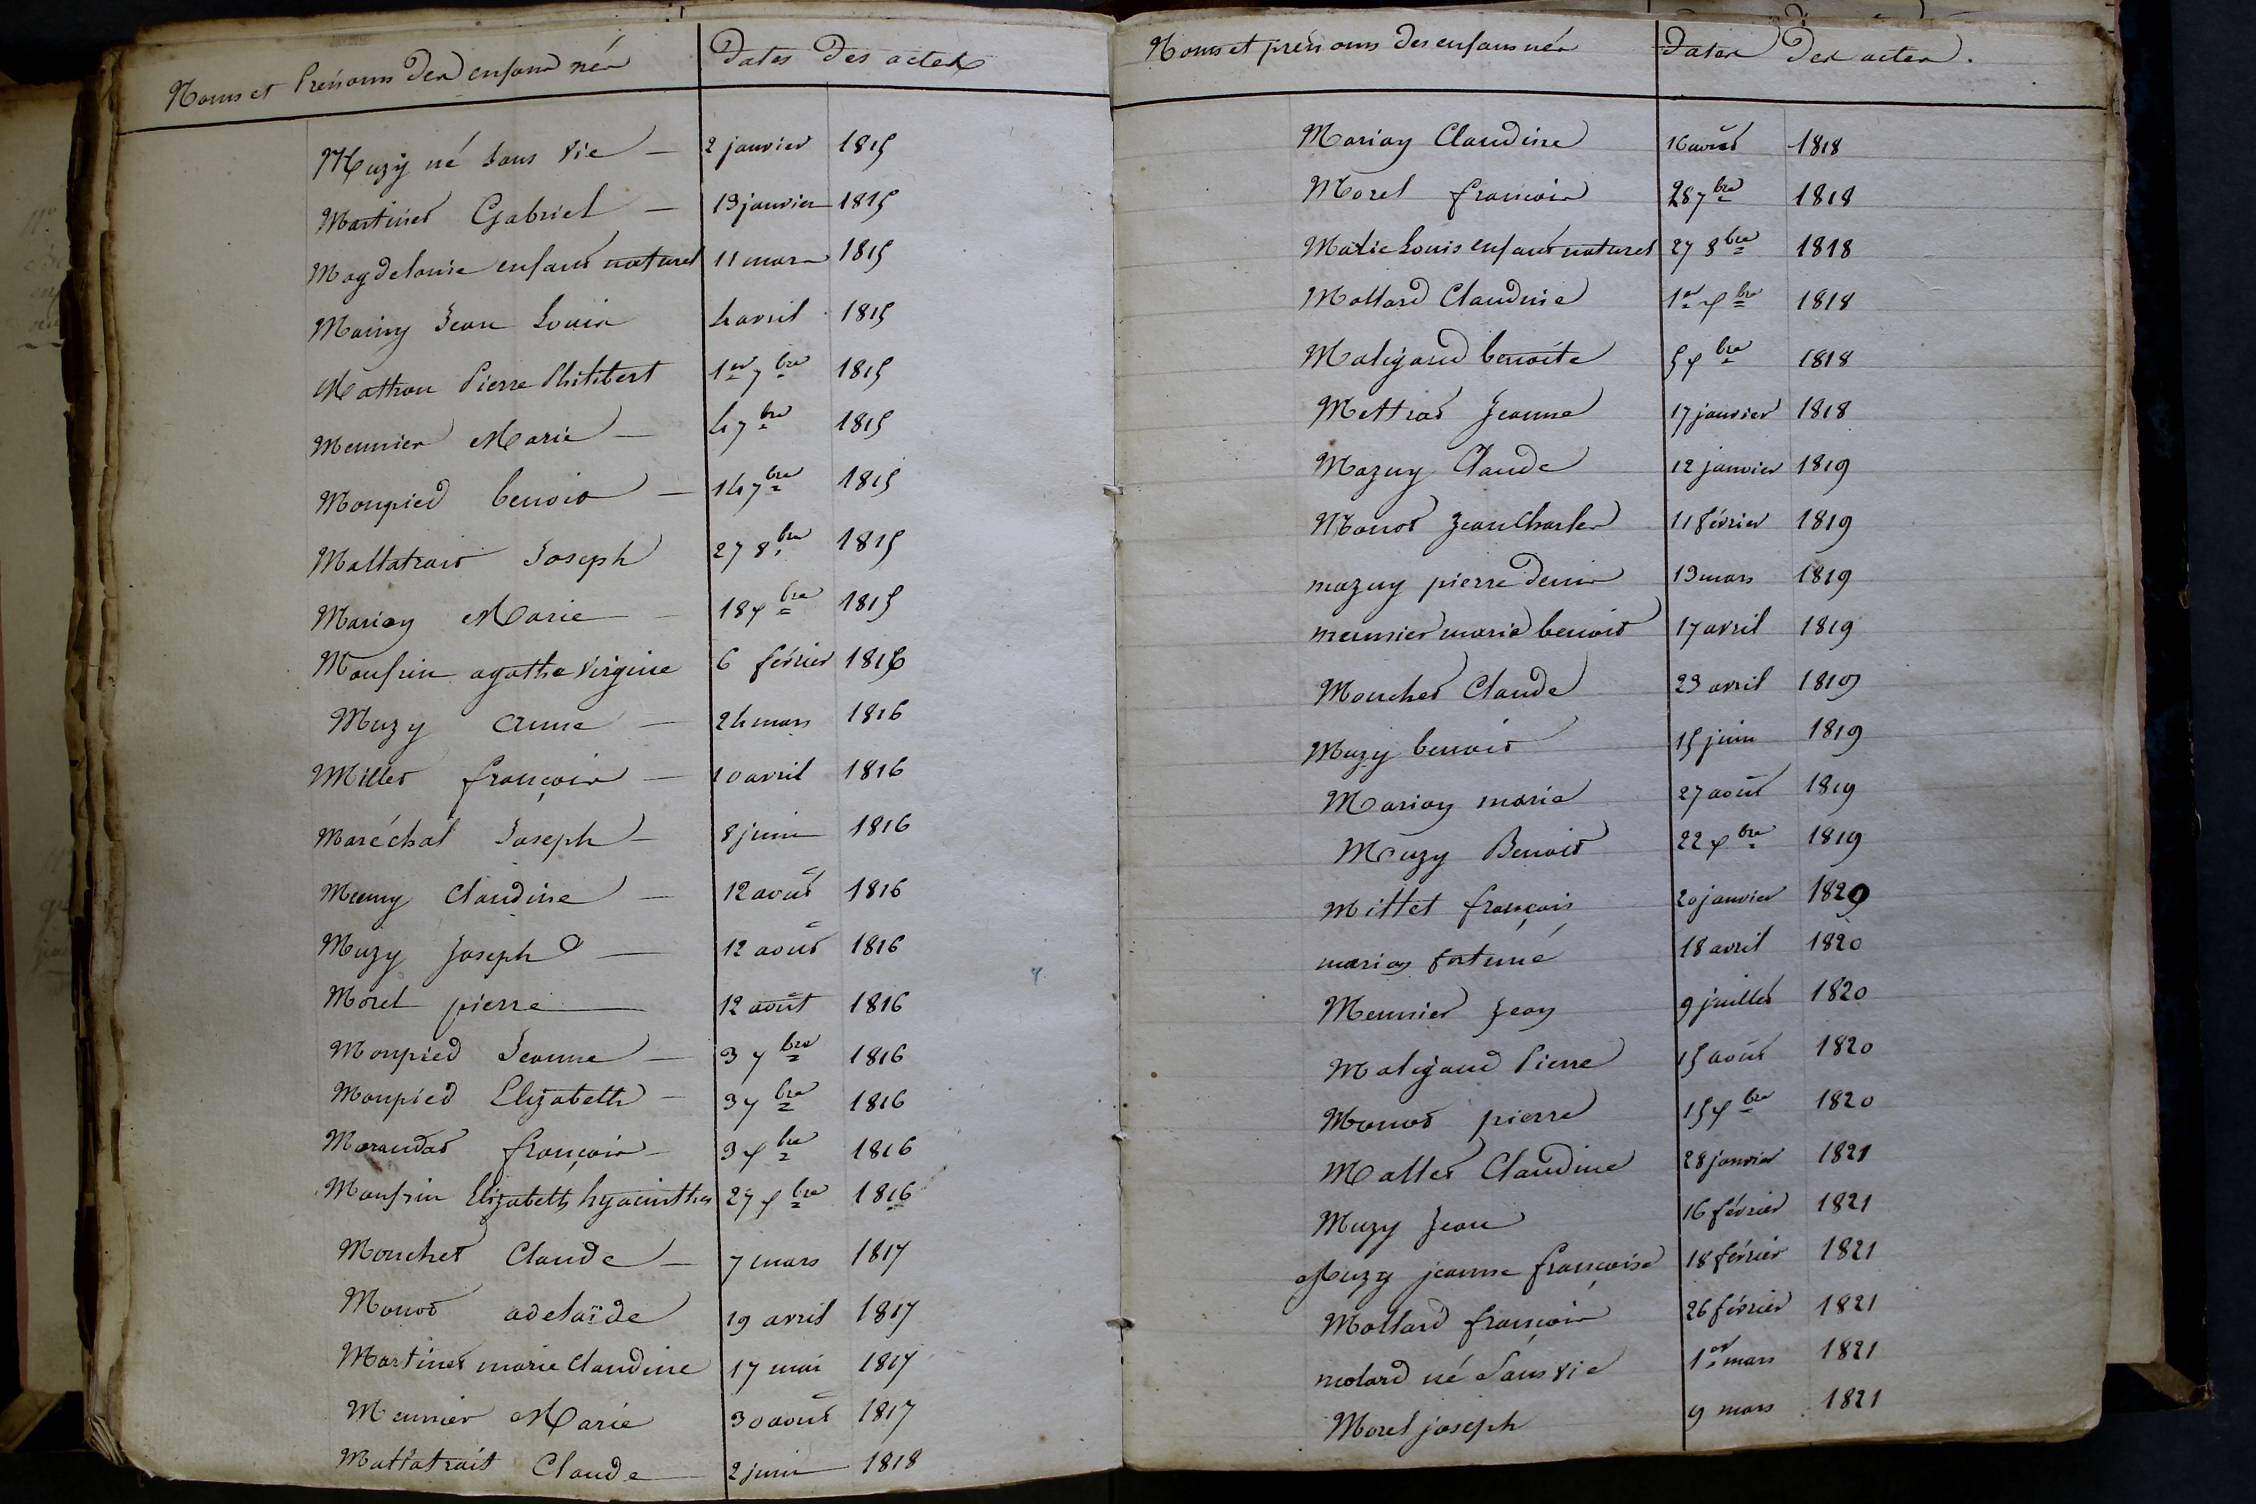 Noms et Prénoms des enfans nés Dates des actes
Muzy né sans vie — 2 janvier 1815
Martinet Gabriel — 13 janvier 1815
Magdelonie enfant naturel 11 mars 1815
Mainy Jean Louis 4 avril 1815
Mathon Pierre Philibert 1er 7bre 1815
Meunier Marie — 4 7bre 1815
Monpied benoit — 14 7bre 1815
Mallatrait Joseph 27 8bre 1815
Marion Marie — 18 xbre 1815
Monfrin agathe Virginie 6 février 1816
Muzy Anne — 24 mars 1816
Millet françois — 10 avril 1816
Maréchal Joseph — 8 juin 1816
Claudine — 12 août 1816
Muzy Joseph — 12 août 1816
Morel pierre — 12 août 1816
Monpied Jeanne — 3 7bre 1816
Monpied Elizabeth — 3 7bre 1816
Morandat françois — 3 xbre 1816
Monfrin Elizabeth hyacinthe 27 xbre 1816
Mouchet Claude — 7 mars 1817
Monot adelaïde 19 avril 1817
Martinet marie Claudine 17 mai 1817
Meunier Marie 30 août 1817
Mallatrait Claude — 2 juin 1818
Noms et prénoms des enfans nés Dates Des actes.
Marion Claudine 16 août 1818
Morel françois 28 7bre 1818
Louis enfant naturel 27 8bre 1818
Mollard Claudine 1er xbre 1818
Maligand benoite 5 xbre 1818
Mettrat Jeanne 17 janvier 1818
Mazuy Claude 12 janvier 1819
Monot Jean Charles 11 février 1819
mazuy pierre denis 13 mars 1819
meunier marie benoit 17 avril 1819
Mouchet Claude 23 avril 1819
Muzy benoit 15 juin 1819
Marion marie 27 août 1819
Muzy Benoit 22 xbre 1819
Millet françois 20 janvier 1820
marion fortuné 18 avril 1820
Meunier Jean 9 juillet 1820
Maligand Pierre 15 août 1820
Monot pierre 15 xbre 1820
Mallet Claudine 28 janvier 1821
Muzy Jean 16 février 1821
Muzy jeanne françoise 18 février 1821
Mollard françois 26 février 1821
molard né Sans vie 1er mars 1821
Morel joseph 9 mars 1821